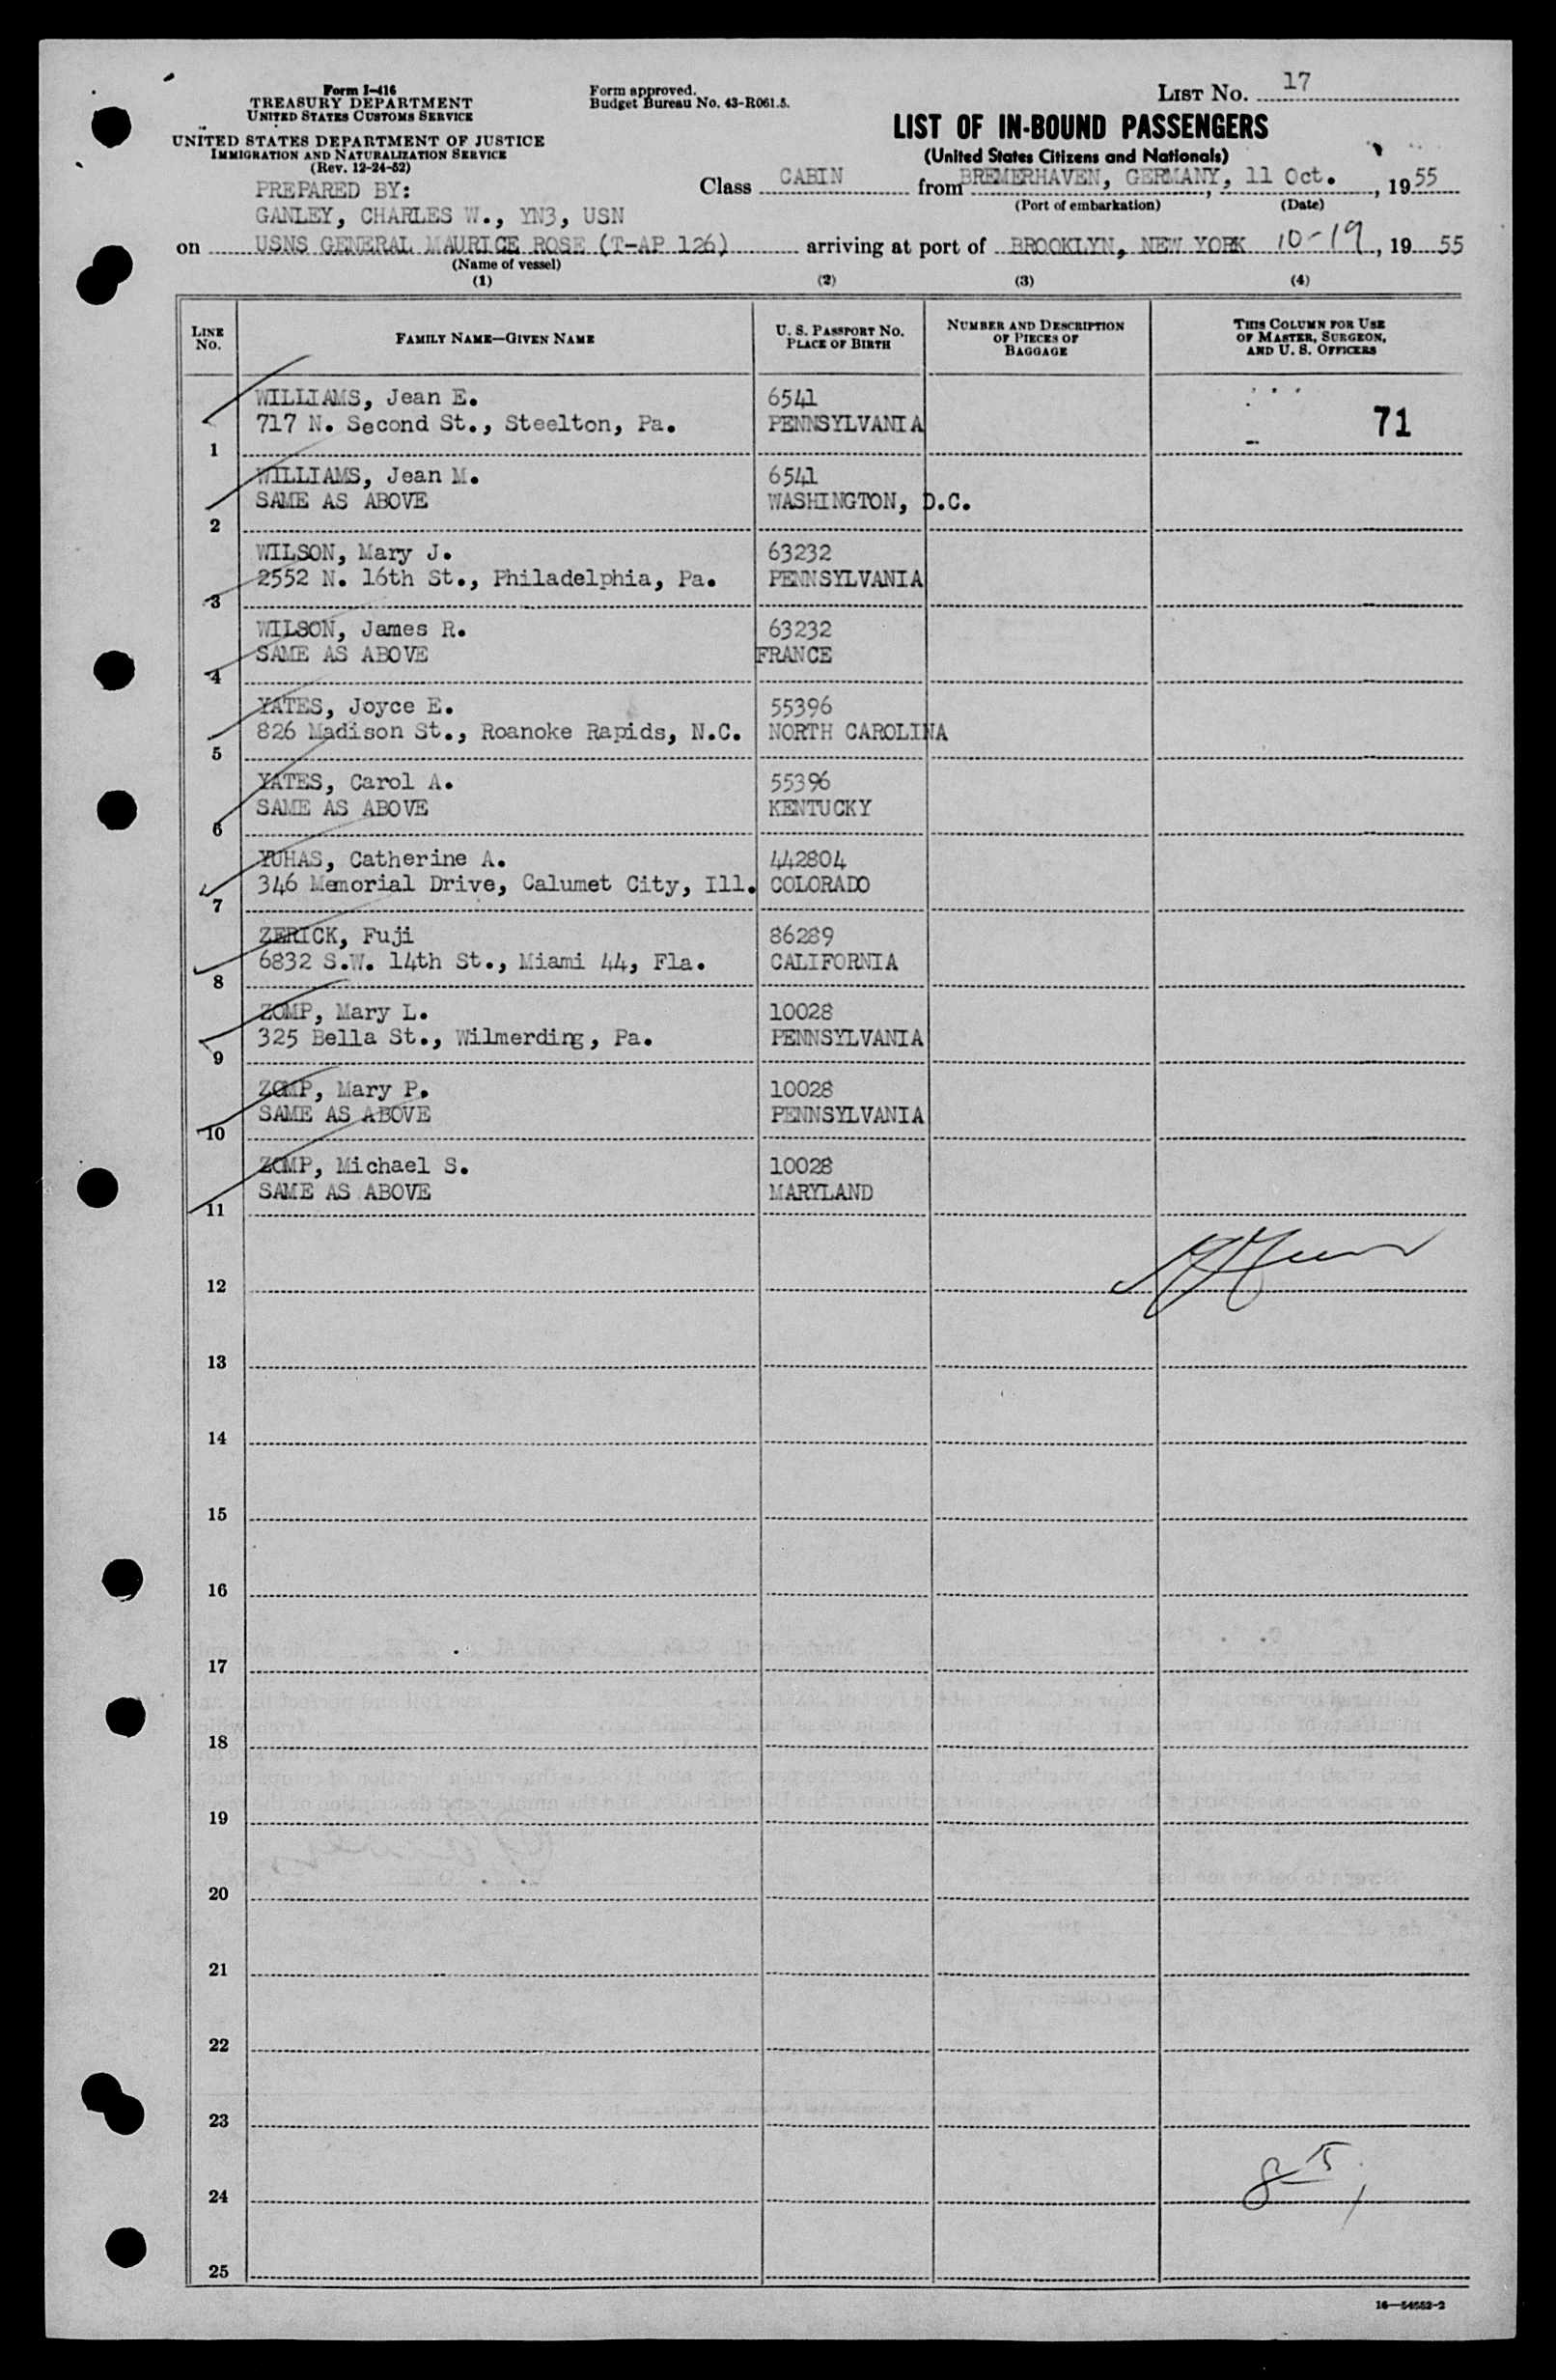 Form I-416
TREASURY DEPARTMENT
UNITED STATES CUSTOMS SERVICE
UNITED STATES DEPARTMENT OF JUSTICE
IMMIGRATION AND NATURALIZATION SERVICE
(Rev. 12-24-52)
Form approved.
Budget Bureau No. 43-R061.5.
LIST NO. 17
LIST OF IN-BOUND PASSENGERS
(United States Citizens and Nationals)
PREPARED BY:
GANLEY, CHARLES W., YN3, USN
Class CABIN from BREMERHAVEN, GERMANY, 11 Oct., 1955
(Port of embarkation) (Date)
on USNS GENERAL MAURICE ROSE (T-AP 126) arriving at port of BROOKLYN, NEW YORK 10-19, 1955
(Name of vessel)
(1) (2) (3) (4)
LINE NO. FAMILY NAME—GIVEN NAME U. S. PASSPORT NO. PLACE OF BIRTH NUMBER AND DESCRIPTION OF PIECES OF BAGGAGE THIS COLUMN FOR USE OF MASTER, SURGEON, AND U. S. OFFICERS
WILLIAMS, Jean E. 6541
717 N. Second St., Steelton, Pa. PENNSYLVANIA 71
1
WILLIAMS, Jean M. 6541
SAME AS ABOVE WASHINGTON, D.C.
2
WILSON, Mary J. 63232
2552 N. 16th St., Philadelphia, Pa. PENNSYLVANIA
3
WILSON, James R. 63232
SAME AS ABOVE FRANCE
4
YATES, Joyce E. 55396
826 Madison St., Roanoke Rapids, N.C. NORTH CAROLINA
5
YATES, Carol A. 55396
SAME AS ABOVE KENTUCKY
6
YUHAS, Catherine A. 442804
346 Memorial Drive, Calumet City, Ill. COLORADO
7
ZERICK, Fuji 86289
6832 S.W. 14th St., Miami 44, Fla. CALIFORNIA
8
ZOMP, Mary L. 10028
325 Bella St., Wilmerding, Pa. PENNSYLVANIA
9
ZOMP, Mary P. 10028
SAME AS ABOVE PENNSYLVANIA
10
ZOMP, Michael S. 10028
SAME AS ABOVE MARYLAND
11
12
13
14
15
16
17
18
19
20
21
22
23
24
25
16—54552-2